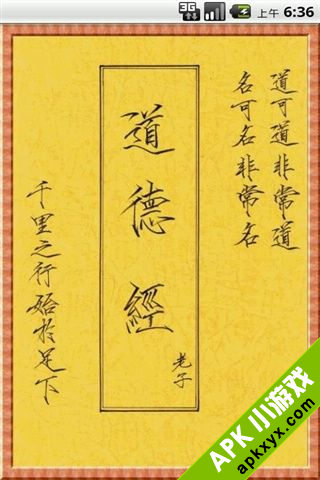 3G 上午 6:36
道可道非常道
名可名非常名
道德經
老子
千里之行始於足下
APK小游戏
apkxyx.com